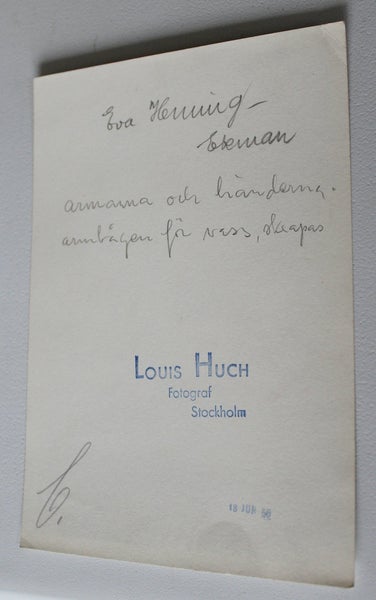 Eva Henning-
Ekman
armarna och händerna.
armbågen för vass, skapas
Louis Huch
Fotograf
Stockholm
18 JUN